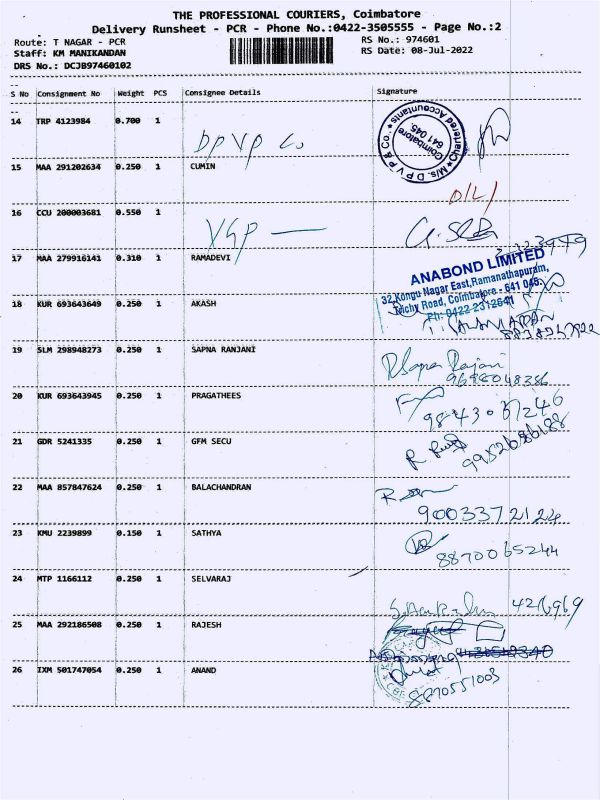 THE PROFESSIONAL COURIERS, Coimbatore
Delivery Runsheet - PCR - Phone No.:0422-3505555 - Page No.:2
Route: T NAGAR - PCR
RS No.: 974601
Staff: KM MANIKANDAN
RS Date: 08-Jul-2022
DRS No.: DCJB97460102
S No Consignment No Weight PCS Consignee Details Signature
14 TRP 4123984 0.700 1 DPVP Co
M/s. D P V P & Co.
Chartered Accountants
Coimbatore
641 045.
15 MAA 291202634 0.250 1 CUMIN
16 CCU 200003681 0.550 1 VGP
17 MAA 279916141 0.310 1 RAMADEVI
ANABOND LIMITED
32, Kongu Nagar East, Ramanathapuram,
Trichy Road, Coimbatore - 641 045.
Ph: 0422-2312641
18 KUR 693643649 0.250 1 AKASH
19 SLM 298948273 0.250 1 SAPNA RANJANI
20 KUR 693643945 0.250 1 PRAGATHEES
21 GDR 5241335 0.250 1 GFM SECU
9952686188
22 MAA 857847624 0.250 1 BALACHANDRAN
9003372124
23 KMU 2239899 0.150 1 SATHYA
8870065244
24 MTP 1166112 0.250 1 SELVARAJ
4216969
25 MAA 292186508 0.250 1 RAJESH
26 IXM 501747054 0.250 1 ANAND
8870551003